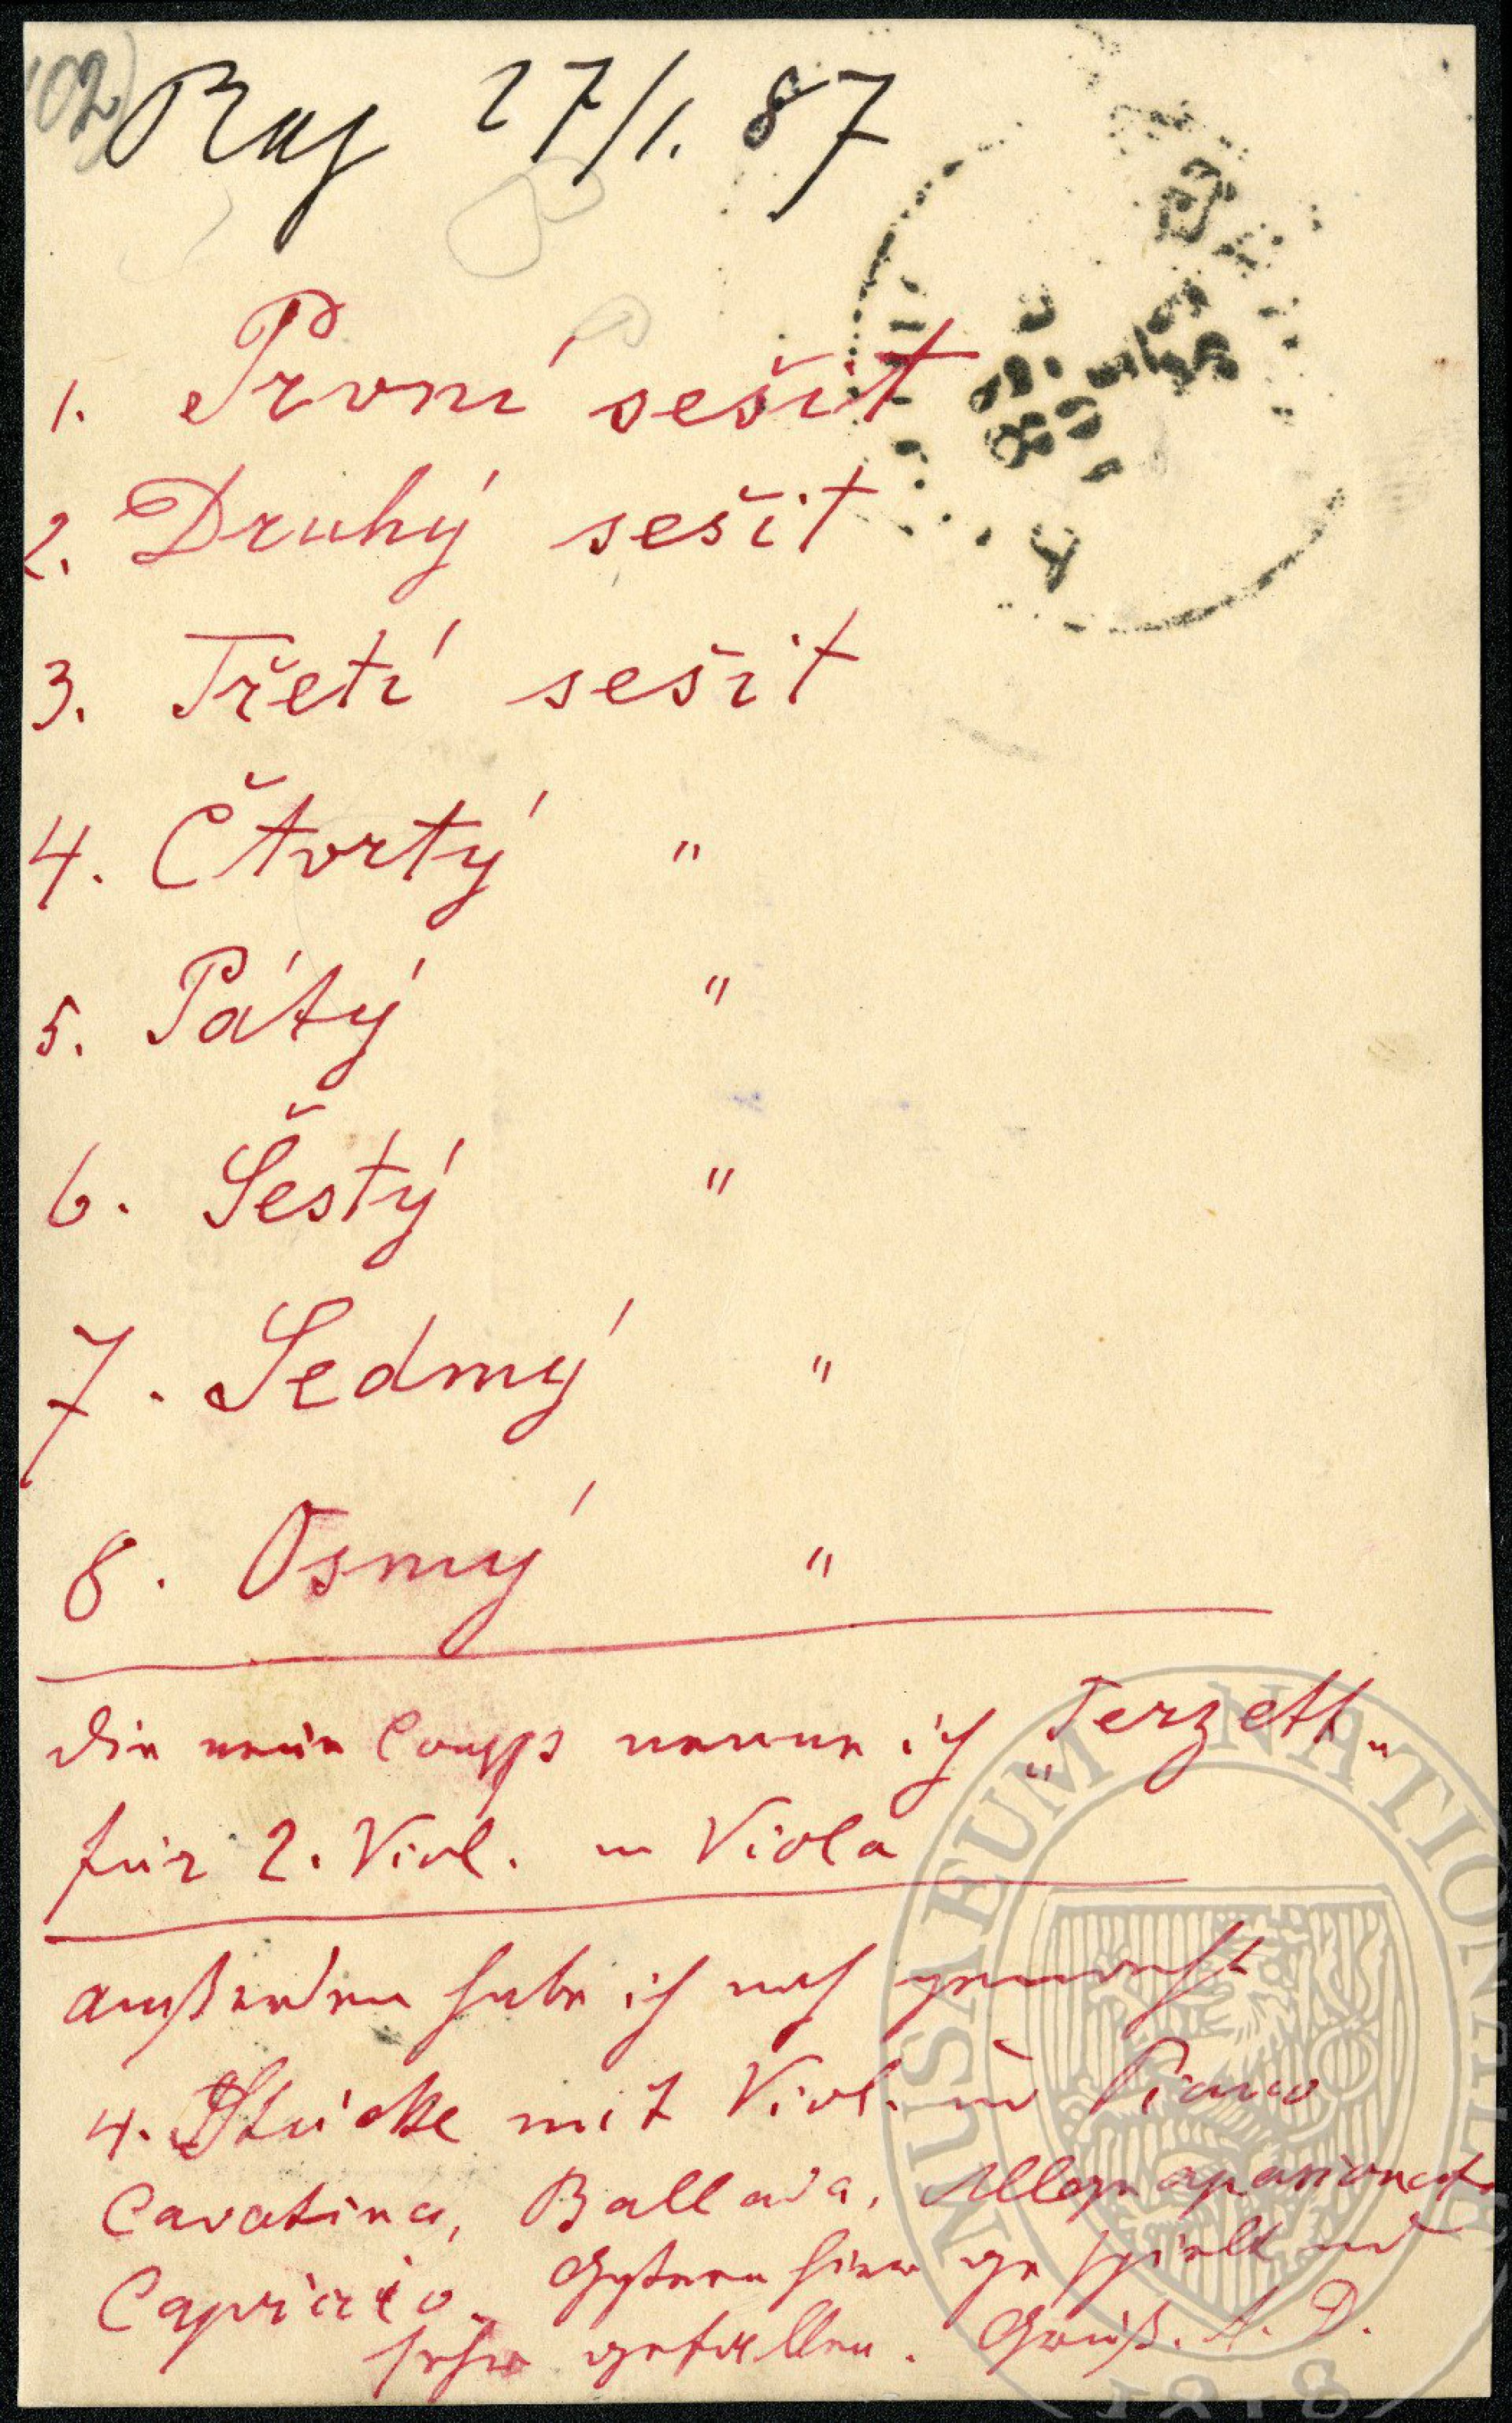 102)
Prag 27/1. 87
1. První sešit
2. Druhý sešit
3. Třetí sešit
4. Čtvrtý "
5. Pátý "
6. Šestý "
7. Sedmý "
8. Osmý "
die neue Comps nenne ich „Terzett"
für 2. Viol. u Viola
außerdem habe ich noch gemacht
4. Stücke mit Viol. und Piano
Cavatina, Ballada, Allegro apasionato
Capriccio. Gestern hier gespielt und
sehr gefallen. Gruß. A. D.
MUSAEUM NATIONALE
1818